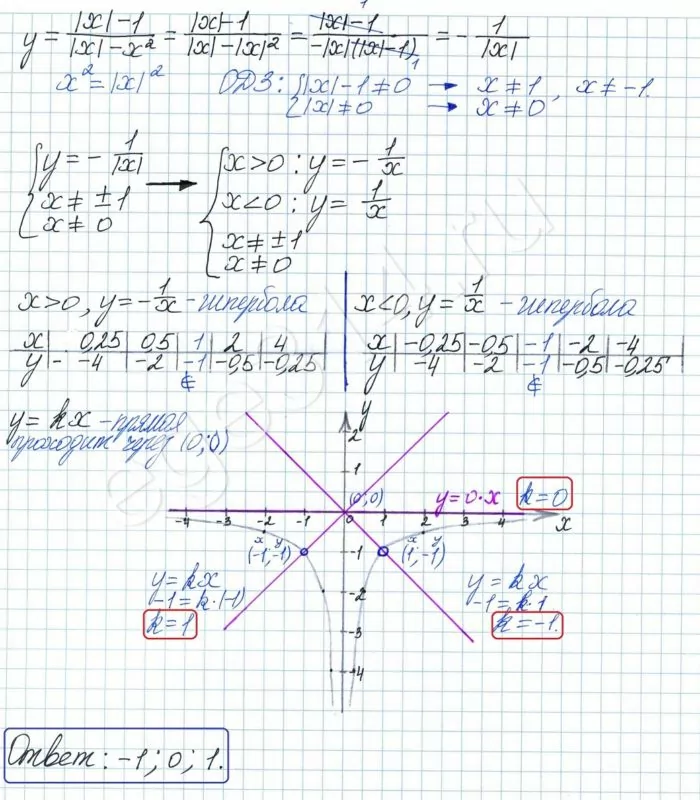 y = (|x|-1)/(|x|-x²) = (|x|-1)/(|x|-|x|²) = (|x|-1)/(-|x|(|x|-1)) = - 1/|x|
x² = |x|² ОДЗ: { |x|-1≠0 → x≠1, x≠-1.
|x|≠0 → x≠0
{ y = - 1/|x| → { x>0: y = - 1/x
x≠±1 x<0: y = 1/x
x≠0 x≠±1
x≠0
x>0, y=-1/x - гипербола
x | 0,25 | 0,5 | 1 | 2 | 4
y | -4 | -2 | -1 | -0,5 | -0,25
x<0, y=1/x - гипербола
x | -0,25 | -0,5 | -1 | -2 | -4
y | -4 | -2 | -1 | -0,5 | -0,25
y = kx - прямая
проходит через (0;0)
y
2
1
(0;0)
y=0·x
k=0
-4 -3 -2 -1 0 1 2 3 4 x
x y
(-1;-1)
-1
x y
(1;-1)
y=kx
-1=k·(-1)
k=1
y=kx
-1=k·1
k=-1.
-2
-3
-4
Ответ: -1; 0; 1.